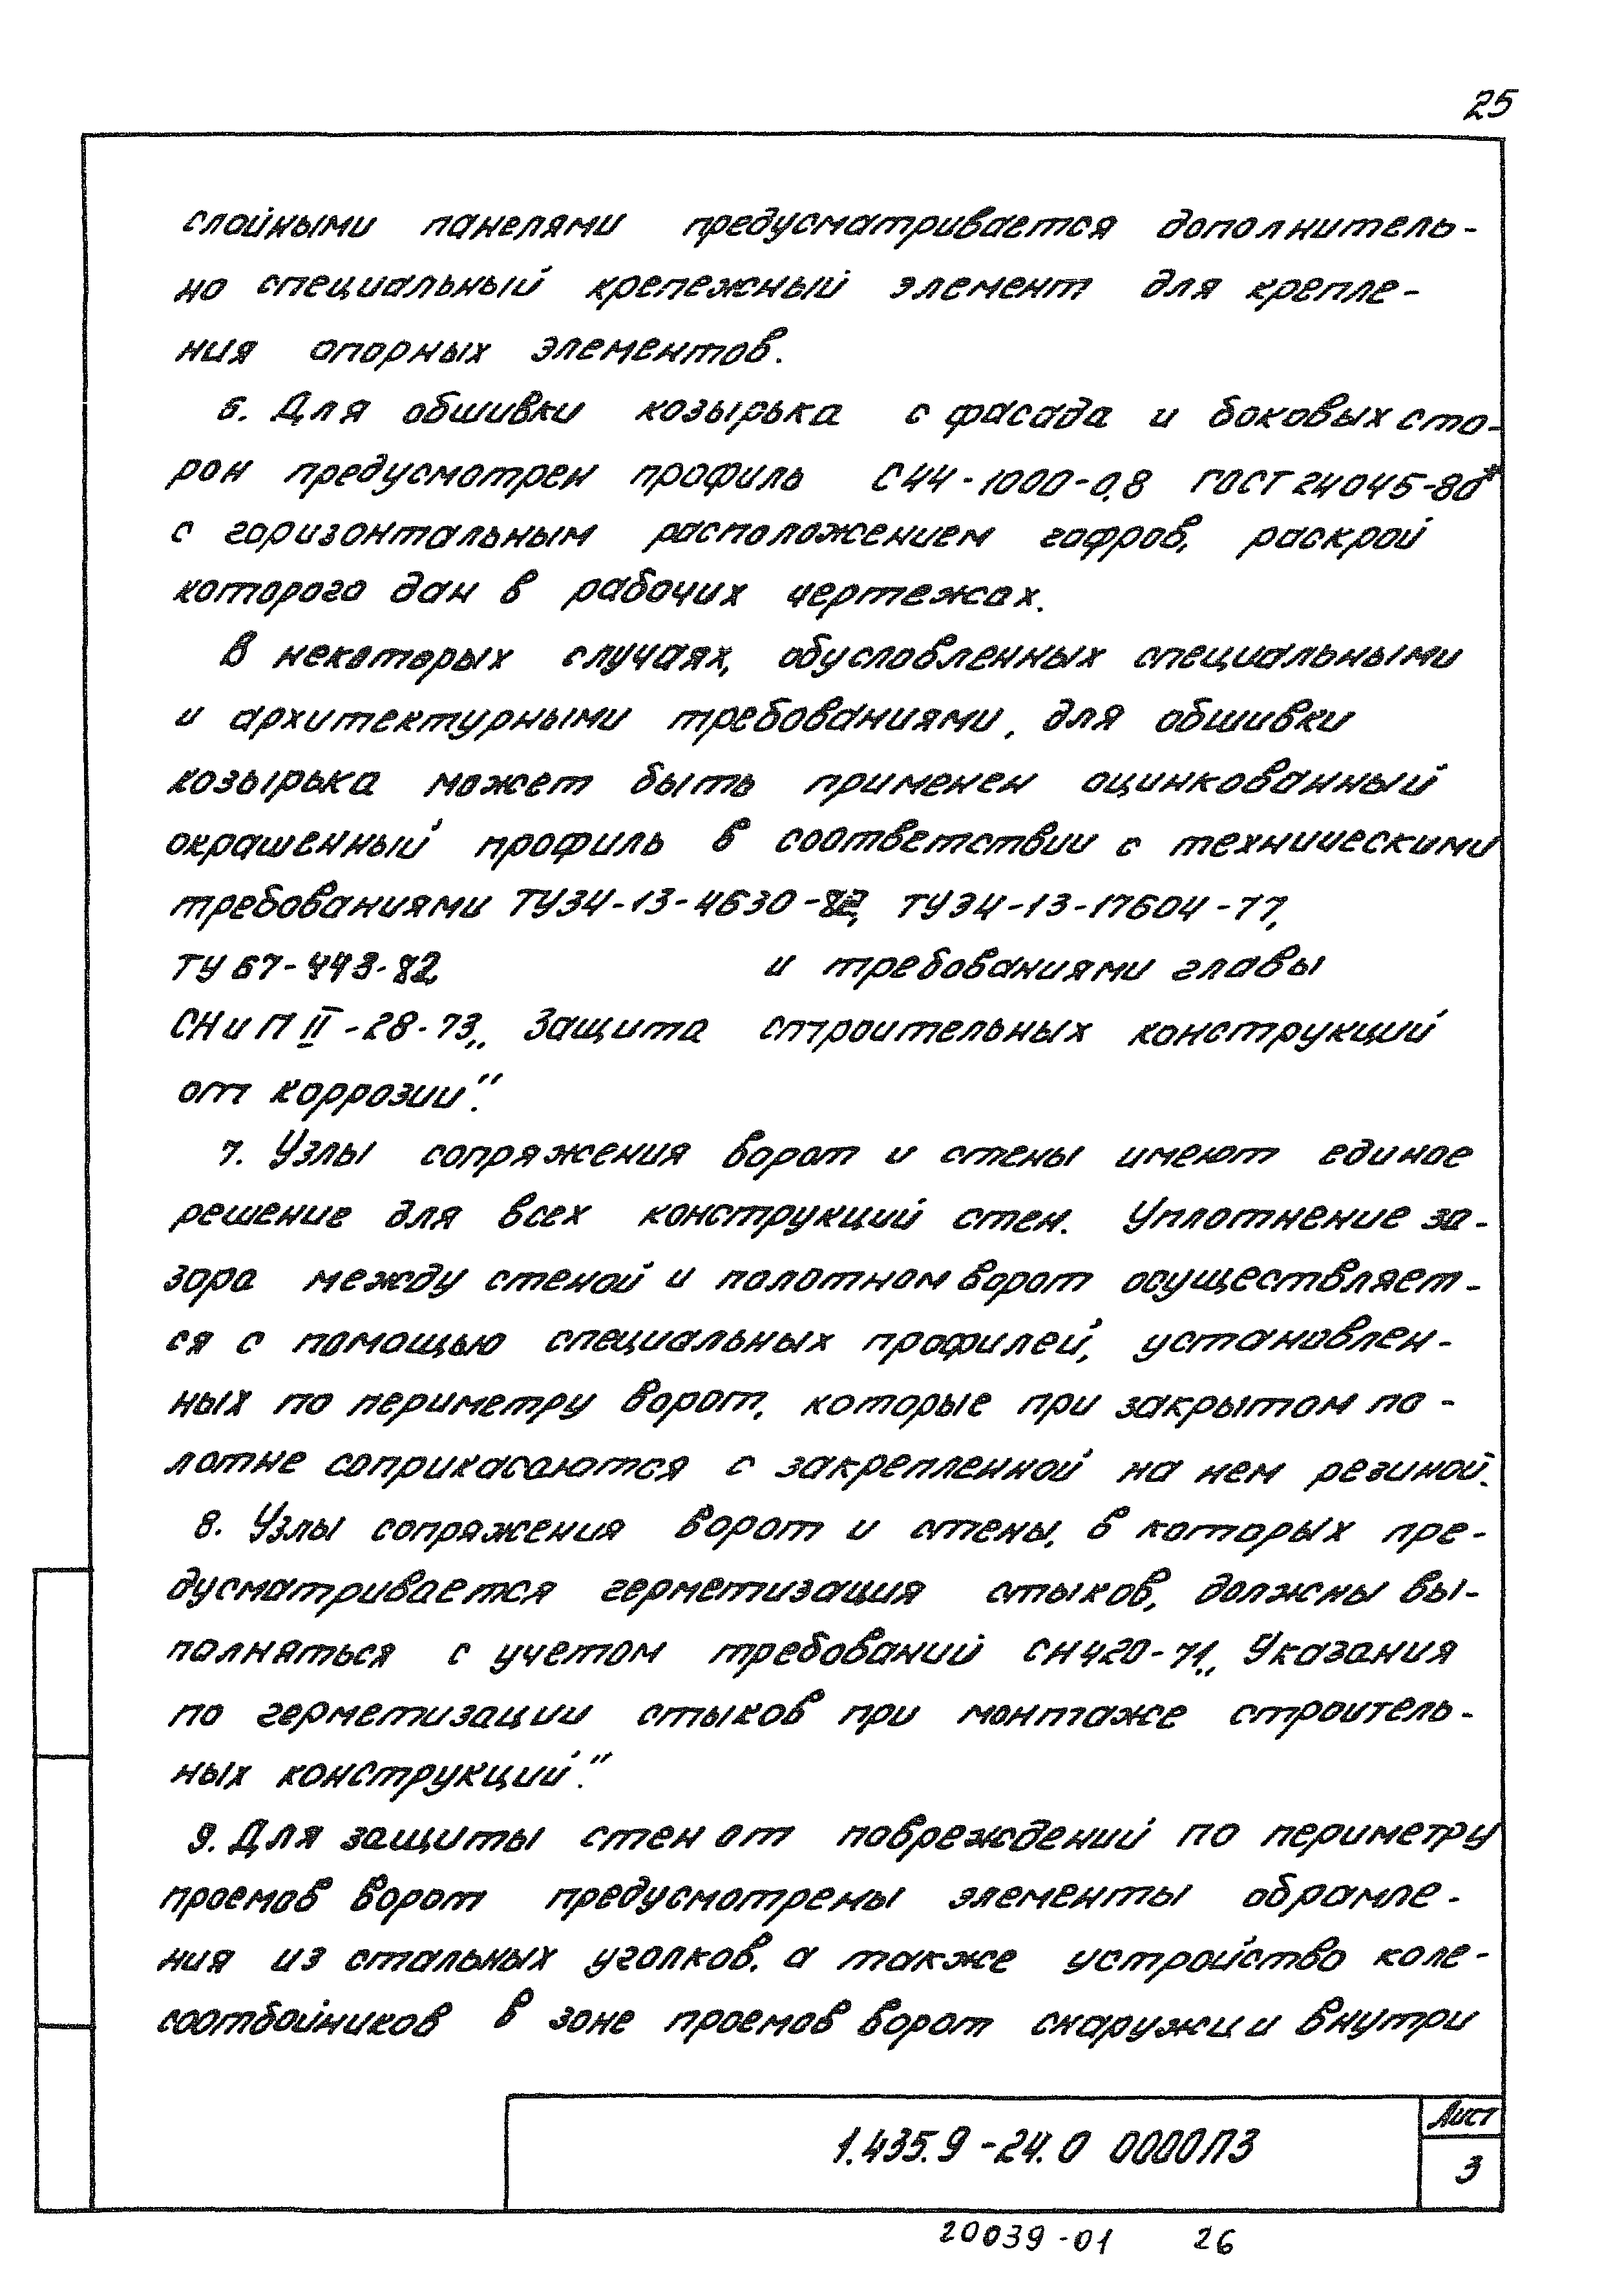 25
слойными панелями предусматривается дополнитель-
но специальный крепежный элемент для крепле-
ния опорных элементов.
6. Для обшивки козырька с фасада и боковых сто-
рон предусмотрен профиль С44-1000-0,8 ГОСТ 24045-80*
с горизонтальным расположением гофров, раскрой
которого дан в рабочих чертежах.
В некоторых случаях, обусловленных специальными
и архитектурными требованиями, для обшивки
козырька может быть применен оцинкованный
окрашенный профиль в соответствии с техническими
требованиями ТУ34-13-4630-82, ТУ34-13-17604-77,
ТУ 67-443-82 и требованиями главы
СНиП II-28-73 „Защита строительных конструкций
от коррозии".
7. Узлы сопряжения ворот и стены имеют единое
решение для всех конструкций стен. Уплотнение за-
зора между стеной и полотном ворот осуществляет-
ся с помощью специальных профилей, установлен-
ных по периметру ворот, которые при закрытом по-
лотне соприкасаются с закрепленной на нем резиной.
8. Узлы сопряжения ворот и стены, в которых пре-
дусматривается герметизация стыков, должны вы-
полняться с учетом требований СН420-71 „Указания
по герметизации стыков при монтаже строитель-
ных конструкций".
9. Для защиты стен от повреждений по периметру
проемов ворот предусмотрены элементы обрамле-
ния из стальных уголков, а также устройство коле-
соотбойников в зоне проемов ворот снаружи и внутри
1.435.9-24.0 0000ПЗ
Лист
3
20039-01 26